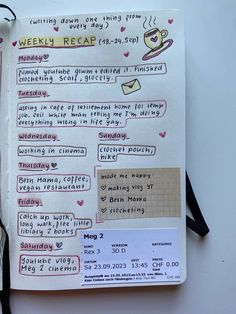 (writing down one thing from
every day)
WEEKLY RECAP (18.-24. Sep)
Monday
filmed youtube gruwm + edited it. finished
crocheting scarf, grocery.
Tuesday
asking in cafe of retirement home for temp
job. evil white man telling me I'm doing
everything wrong in life yay.
Wednesday
working in cinema
Sunday
crochet pouch,
hike
Thursday
Bern Mama, coffee,
vegan restaurant
made me happy
making vlog YT
Bern Mama
crocheting
Friday
catch up work,
long walk, free little
library 2 books
Saturday
Youtube vlog,
Meg 2 cinema
Meg 2
KINO VERSION KATEGORIE
Rex 3 3D D
DATUM ZEIT PREIS
Sa 23.09.2023 13:45 CHF 0.00